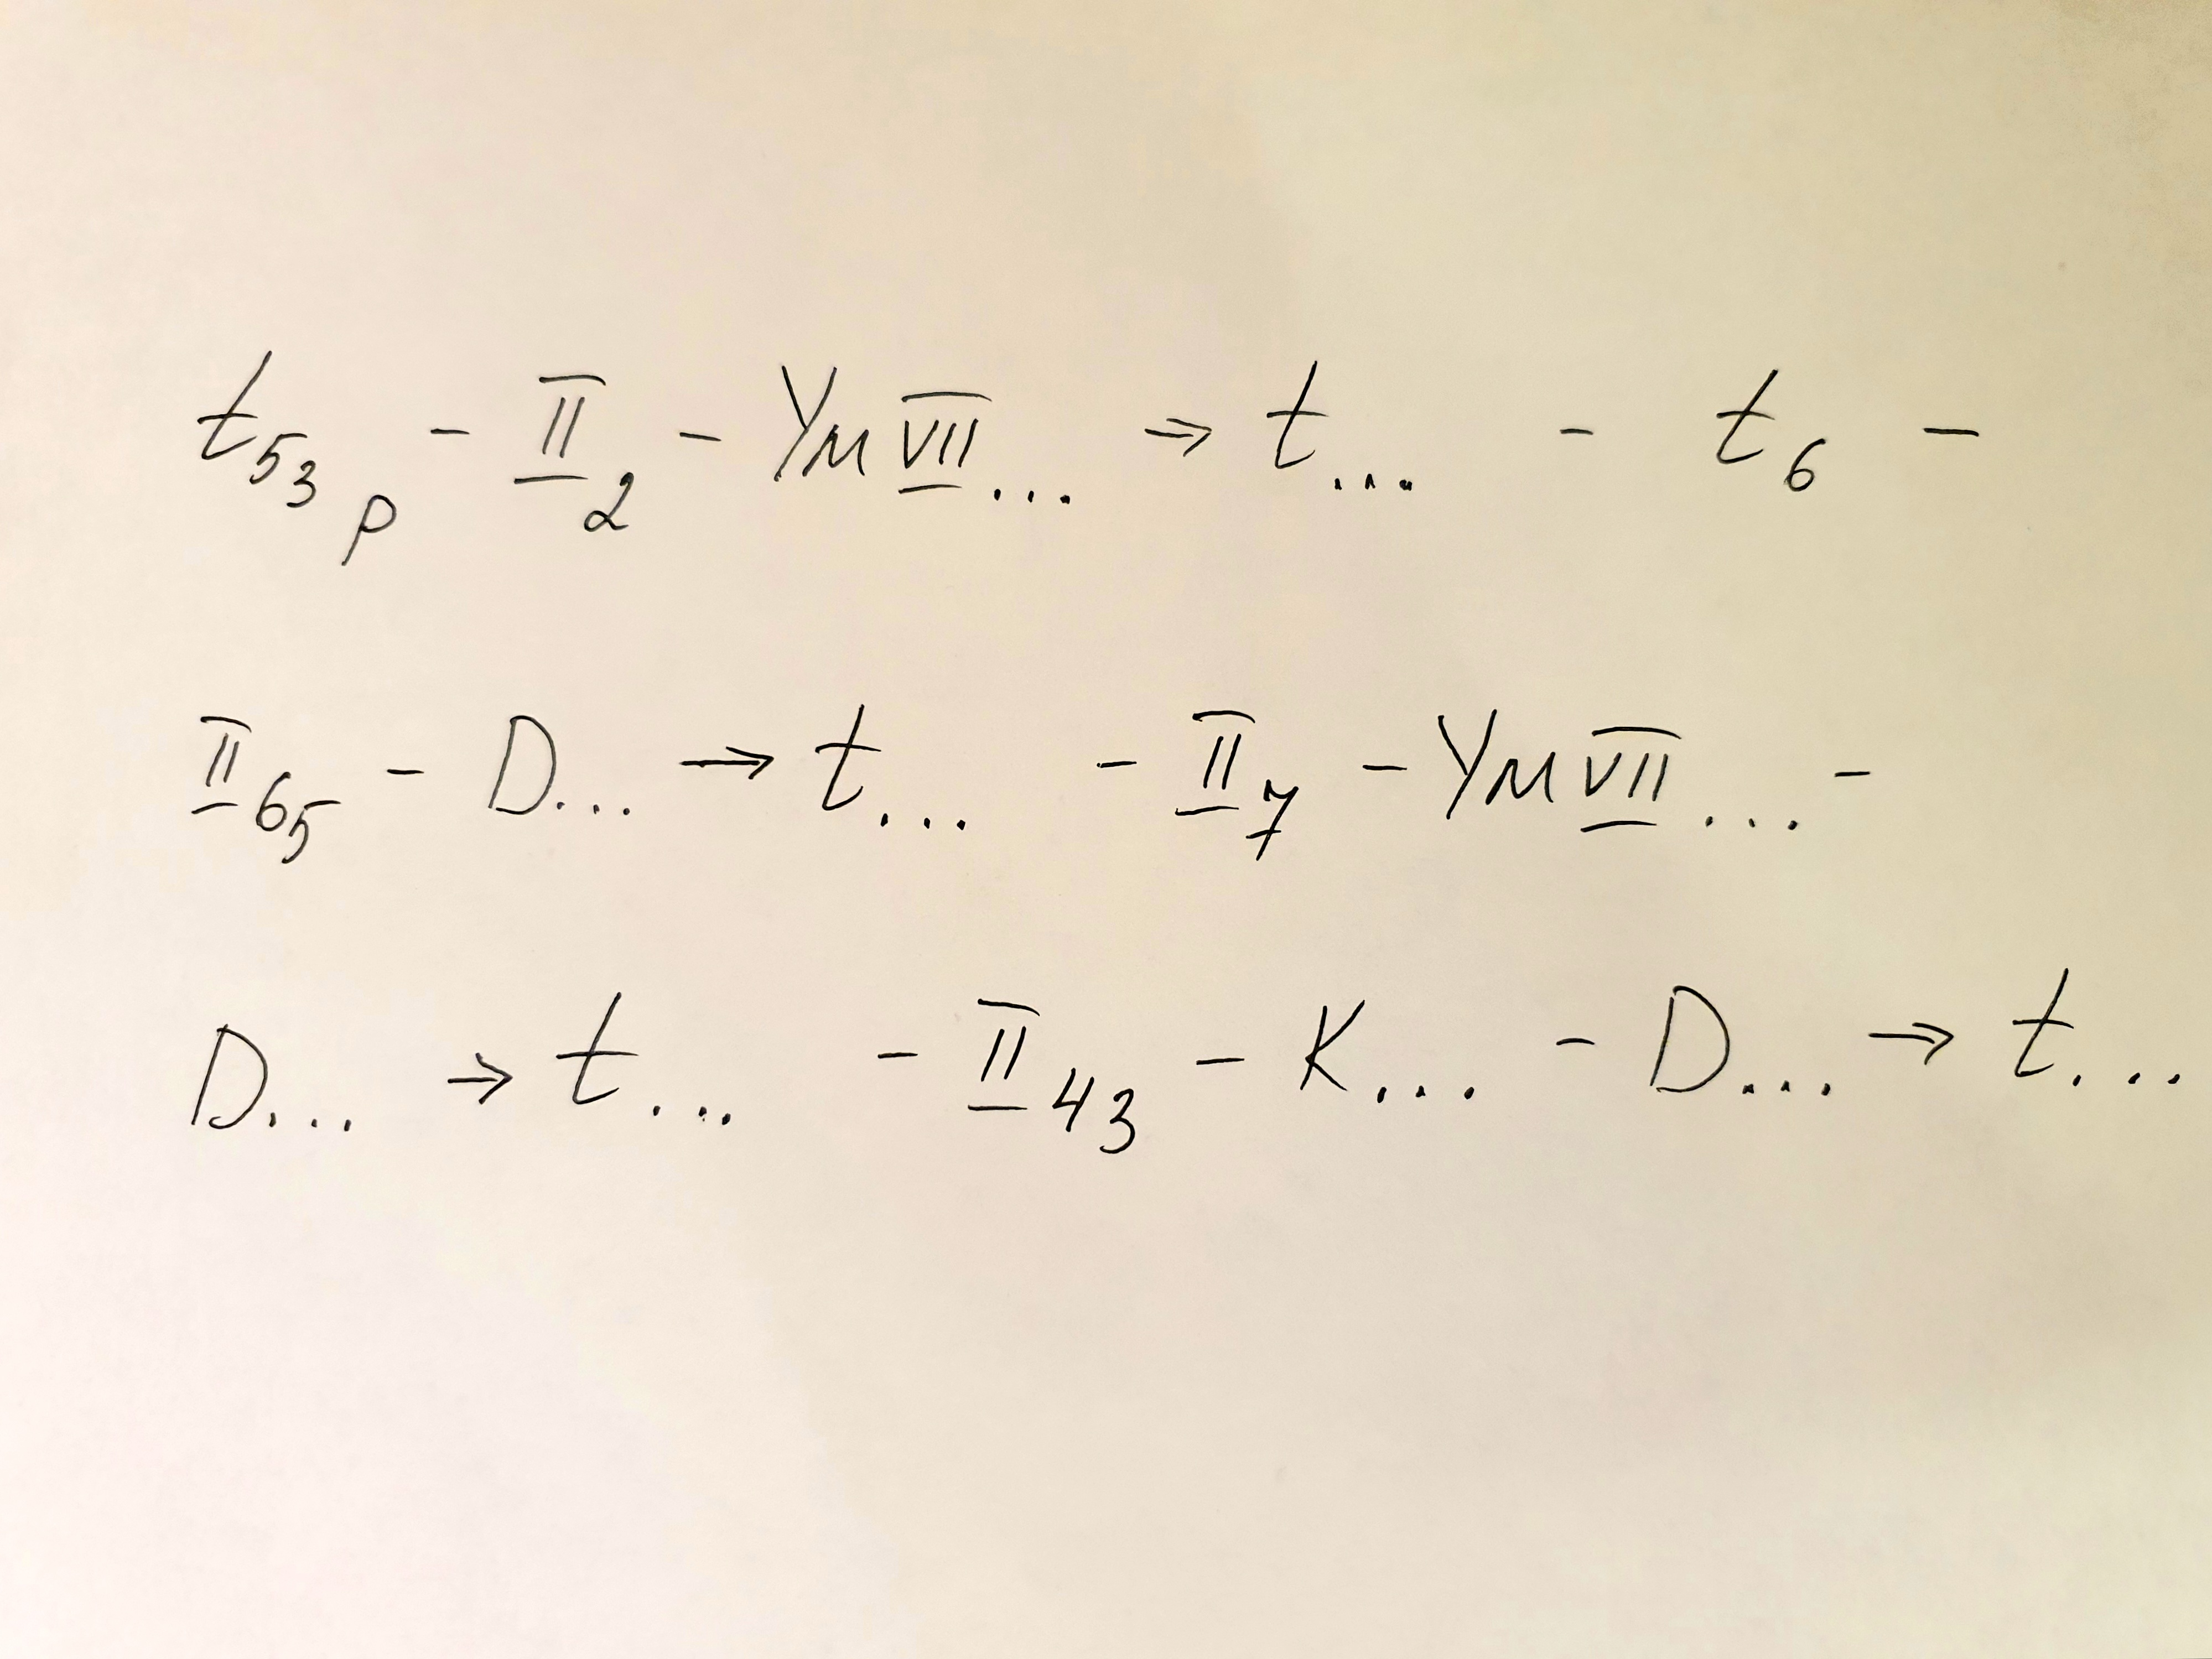 t53 р - II2 - УмVII... → t... - t6 -
II65 - D... → t... - II7 - УмVII... -
D... → t... - II43 - K... - D... → t...